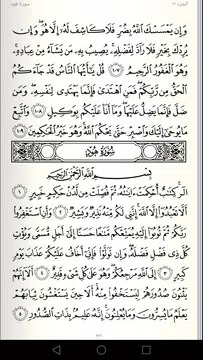 الجزء ١١
سورة هود
وَإِن يَمْسَسْكَ ٱللَّهُ بِضُرٍّ فَلَا كَاشِفَ لَهُۥٓ إِلَّا هُوَ ۖ وَإِن
يُرِدْكَ بِخَيْرٍ فَلَا رَآدَّ لِفَضْلِهِۦ ۚ يُصِيبُ بِهِۦ مَن يَشَآءُ مِنْ عِبَادِهِۦ ۚ
وَهُوَ ٱلْغَفُورُ ٱلرَّحِيمُ ١٠٧ قُلْ يَٰٓأَيُّهَا ٱلنَّاسُ قَدْ جَآءَكُمُ
ٱلْحَقُّ مِن رَّبِّكُمْ ۖ فَمَنِ ٱهْتَدَىٰ فَإِنَّمَا يَهْتَدِى لِنَفْسِهِۦ ۖ وَمَن
ضَلَّ فَإِنَّمَا يَضِلُّ عَلَيْهَا ۖ وَمَآ أَنَا۠ عَلَيْكُم بِوَكِيلٍ ١٠٨ وَٱتَّبِعْ
مَا يُوحَىٰٓ إِلَيْكَ وَٱصْبِرْ حَتَّىٰ يَحْكُمَ ٱللَّهُ ۚ وَهُوَ خَيْرُ ٱلْحَٰكِمِينَ ١٠٩
سُورَةُ هُودٍ
بِسْمِ ٱللَّهِ ٱلرَّحْمَٰنِ ٱلرَّحِيمِ
الٓر ۚ كِتَٰبٌ أُحْكِمَتْ ءَايَٰتُهُۥ ثُمَّ فُصِّلَتْ مِن لَّدُنْ حَكِيمٍ خَبِيرٍ ١
أَلَّا تَعْبُدُوٓا۟ إِلَّا ٱللَّهَ ۚ إِنَّنِى لَكُم مِّنْهُ نَذِيرٌ وَبَشِيرٌ ٢ وَأَنِ ٱسْتَغْفِرُوا۟
رَبَّكُمْ ثُمَّ تُوبُوٓا۟ إِلَيْهِ يُمَتِّعْكُم مَّتَٰعًا حَسَنًا إِلَىٰٓ أَجَلٍ مُّسَمًّى وَيُؤْتِ
كُلَّ ذِى فَضْلٍ فَضْلَهُۥ ۖ وَإِن تَوَلَّوْا۟ فَإِنِّىٓ أَخَافُ عَلَيْكُمْ عَذَابَ يَوْمٍ
كَبِيرٍ ٣ إِلَى ٱللَّهِ مَرْجِعُكُمْ ۖ وَهُوَ عَلَىٰ كُلِّ شَىْءٍ قَدِيرٌ ٤ أَلَآ إِنَّهُمْ
يَثْنُونَ صُدُورَهُمْ لِيَسْتَخْفُوا۟ مِنْهُ ۚ أَلَا حِينَ يَسْتَغْشُونَ ثِيَابَهُمْ
يَعْلَمُ مَا يُسِرُّونَ وَمَا يُعْلِنُونَ ۚ إِنَّهُۥ عَلِيمٌۢ بِذَاتِ ٱلصُّدُورِ ٥
٢٢١